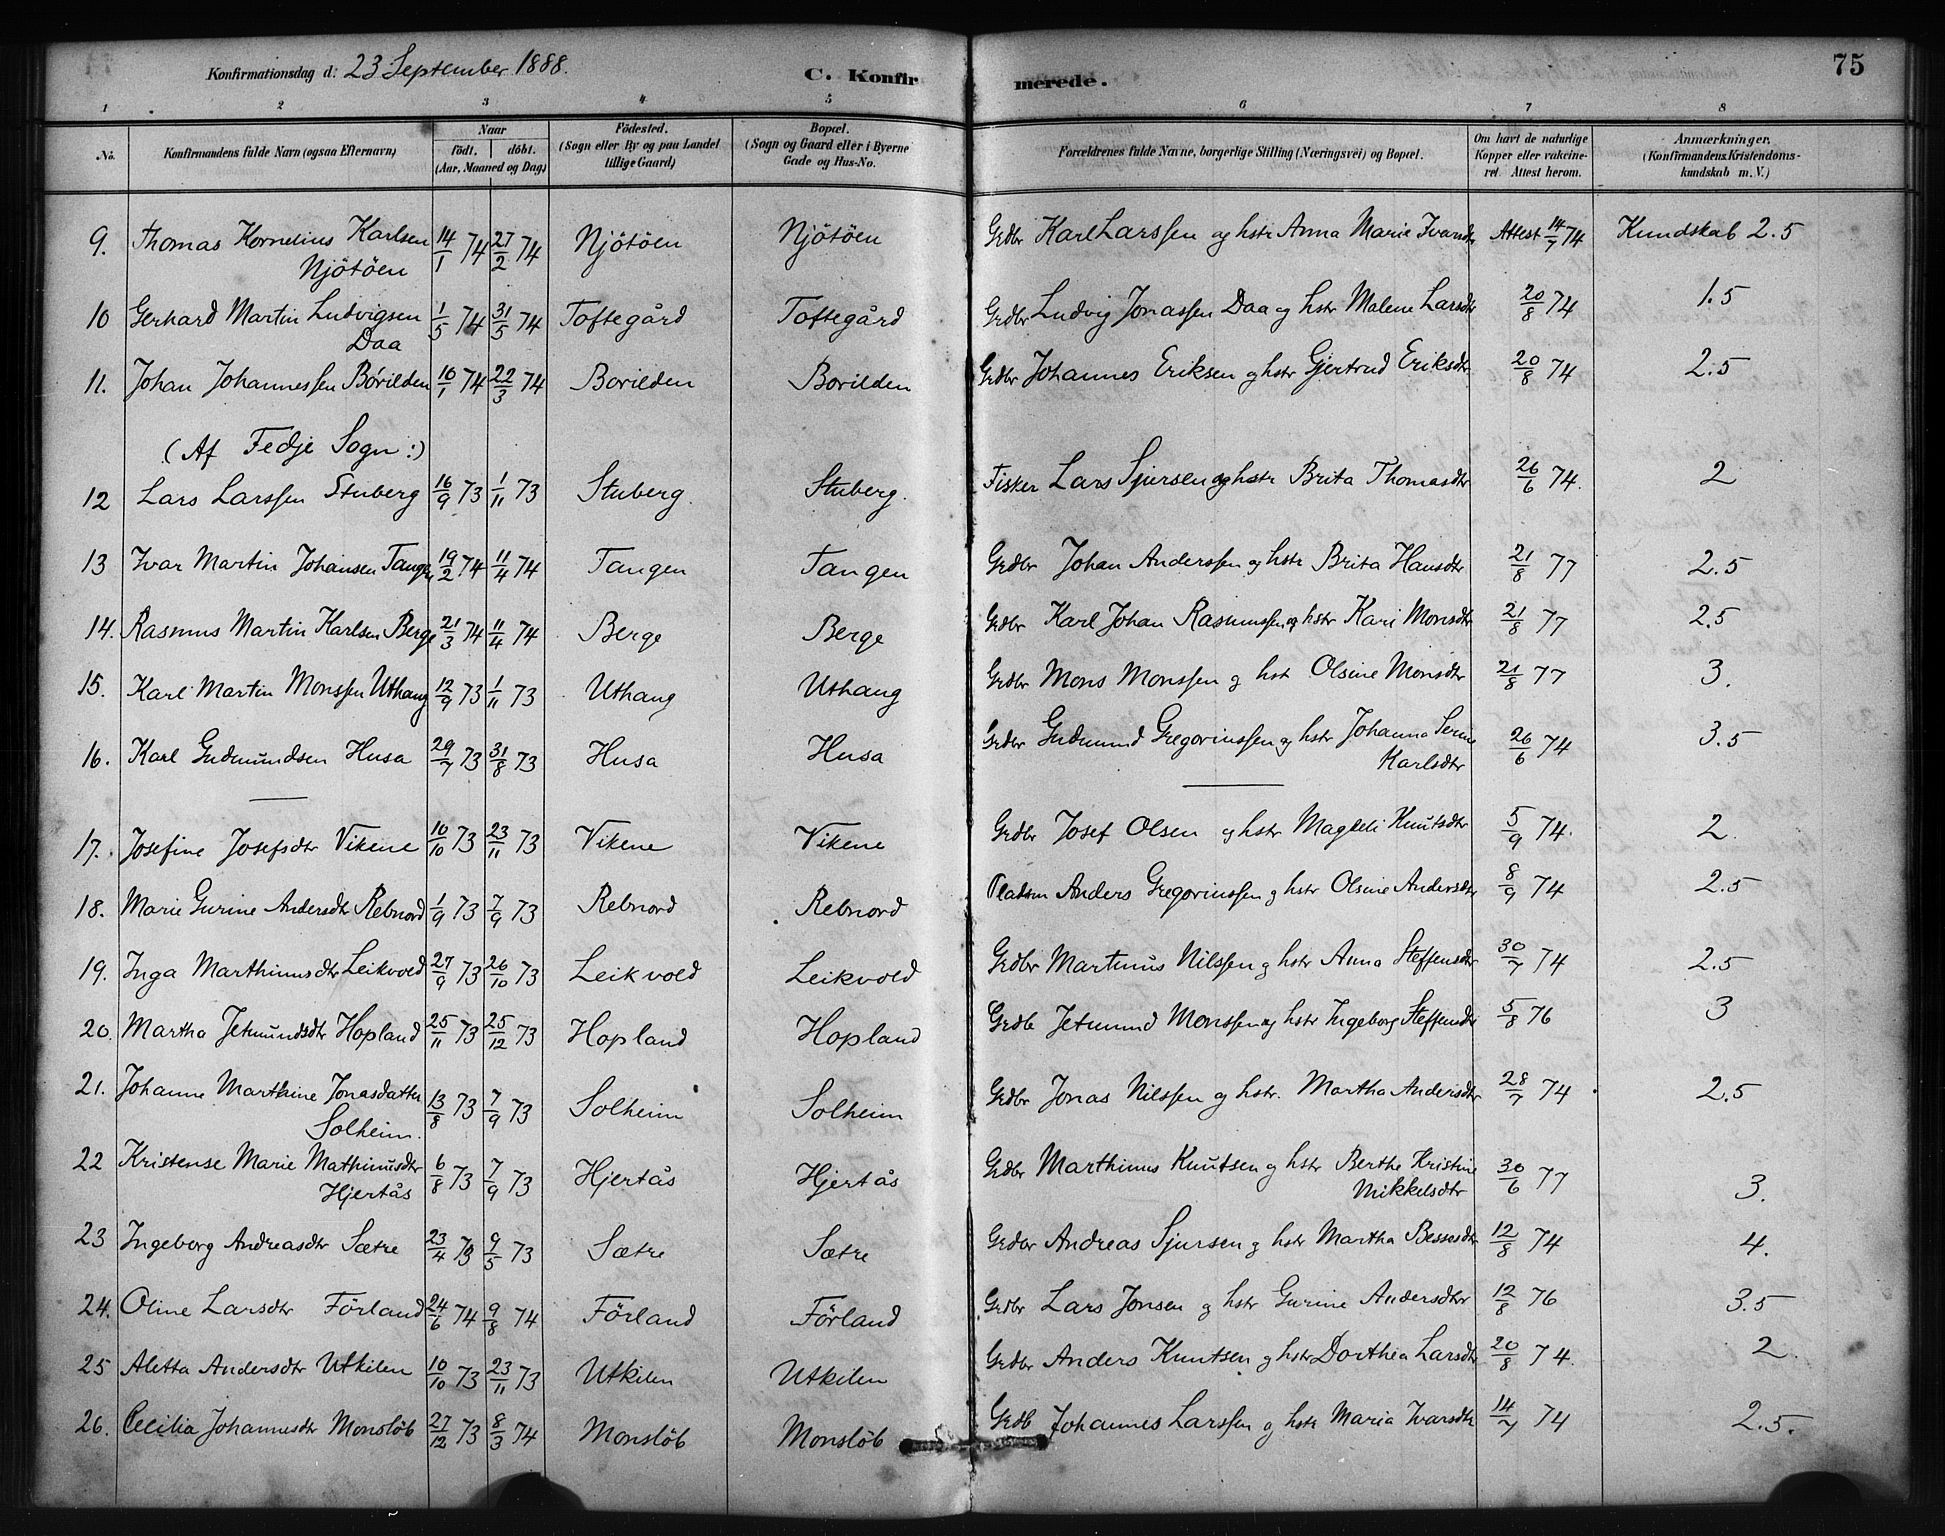 Konfirmationsdag d: 23 September 1888.
C. Konfirmerede.
75
1 2 3 4 5 6 7 8
No.
Konfirmandens fulde Navn (ogsaa Efternavn)
Naar
født. døbt.
(Aar, Maaned og Dag)
Födested.
(Sogn eller By og paa Landet
tillige Gaard)
Bopæl.
(Sogn og Gaard eller i Byerne
Gade og Hus-No.
Forældrenes fulde Navne, borgerlige Stilling (Næringsvei) og Bopæl.
Om havt de naturlige
Kopper eller vakcine-
ret. Attest herom.
Anmærkninger.
(Konfirmandens Kristendoms-
kundskab m. V.)
9. Thomas Kornelius Karlsen 14/1 74 27/2 74 Njötöen Njötöen Grdbr Karl Larssen og hstr Anna Marie Ivarsdtr Attest 14/7 74 Kundskab 2.5
Njötöen
10 Gerhard Martin Ludvigsen 1/5 74 31/5 74 Toftegård Toftegård Grdbr Ludvig Jonassen Daa og hstr Malene Larsdtr 20/8 74 1.5
Daa
11. Johan Johannessen Börilden 10/1 74 22/3 74 Borilden Borilden Grdbr Johannes Eriksen og hstr Gjertrud Eriksdtr 20/8 74 2.5
(Af Fedje Sogn:)
12 Lars Larssen Stuberg 16/9 73 1/11 73 Stuberg. Stuberg. Fisker Lars Sjursen og hstr Brita Thomasdtr 26/6 74. 2
13 Ivar Martin Johansen Tangen 19/2 74 11/4 74 Tangen Tangen Grdbr Johan Anderssen og hstr Brita Hansdtr 21/8 77 2.5
14. Rasmus Martin Karlsen Berge 21/3 74 11/4 74 Berge Berge Grdbr Karl Johan Rasmussen og hstr Kari Monsdtr 21/8 77 2.5
15. Karl Martin Monssen Uthaug 12/9 73 1/11 73 Uthaug Uthaug Grdbr Mons Monssen og hst Olsine Monsdtr 21/8 77 3.
16. Karl Gudmundsen Husa 29/7 73 31/8 73 Husa Husa Grdbr Gudmund Gregoriussen og hstr Johanna Serine 26/6 74 3.5
Karlsdtr
17. Josefine Josefsdtr Vikene 10/10 73 23/11 73 Vikene Vikene Grdbr Josef Olsen og hstr Magteli Knutsdtr 5/9 74. 2.
18. Marie Gurine Andersdtr Rebnord 1/9 73 7/9 73 Rebnord Rebnord Pladsm Anders Gregoriussen og hstr Olsine Andersdtr 8/9 74 2.5
19. Inga Marthinusdtr Leikvold 27/9 73 26/10 73 Leikvold Leikvold Grdbr Martinus Nilssen og hstr Anna Steffensdtr 30/7 74 2.5
20. Martha Jetmundsdtr Hopland 25/11 73 25/12 73 Hopland Hopland Grdb Jetmund Monssen og hstr Ingeborg Steffensdtr 5/8 76 3
21. Johanne Marthine Jonasdatter 13/8 73 7/9 73 Solheim Solheim Grdbr Jonas Nilssen og hstr. Martha Andersdtr 28/7 74 2.5
Solheim.
22 Kristense Marie Mathinusdtr 6/8 73 7/9 73 Hjertås Hjertås Grdbr Marthinus Knutsen og hstr Berthe Kristine 30/6 77 3.
Hjertås Mikkelsdtr
23 Ingeborg Andreasdtr Sætre 23/4 73 9/5 73 Sætre Sætre Grdbr Andreas Sjursen og hstr Martha Bessesdtr 12/8 74 4.
24. Oline Larsdtr Förland 24/6 74 9/8 74 Förland Förland Grdbr Lars Jonsen og hstr Gurine Andersdtr 12/8 76 3.5
25 Aletta Andersdtr Utkilen 10/10 73 23/11 73 Utkilen Utkilen Grdbr Anders Knutsen og hstr Dorthea Larsdtr 20/8 74. 2.
26. Cecilia Johannesdtr Monslöb 27/12 73 8/3 74 Monslöb Monslöb Grdb Johannes Larssen og hstr Maria Ivarsdtr 14/7 74 2.5.